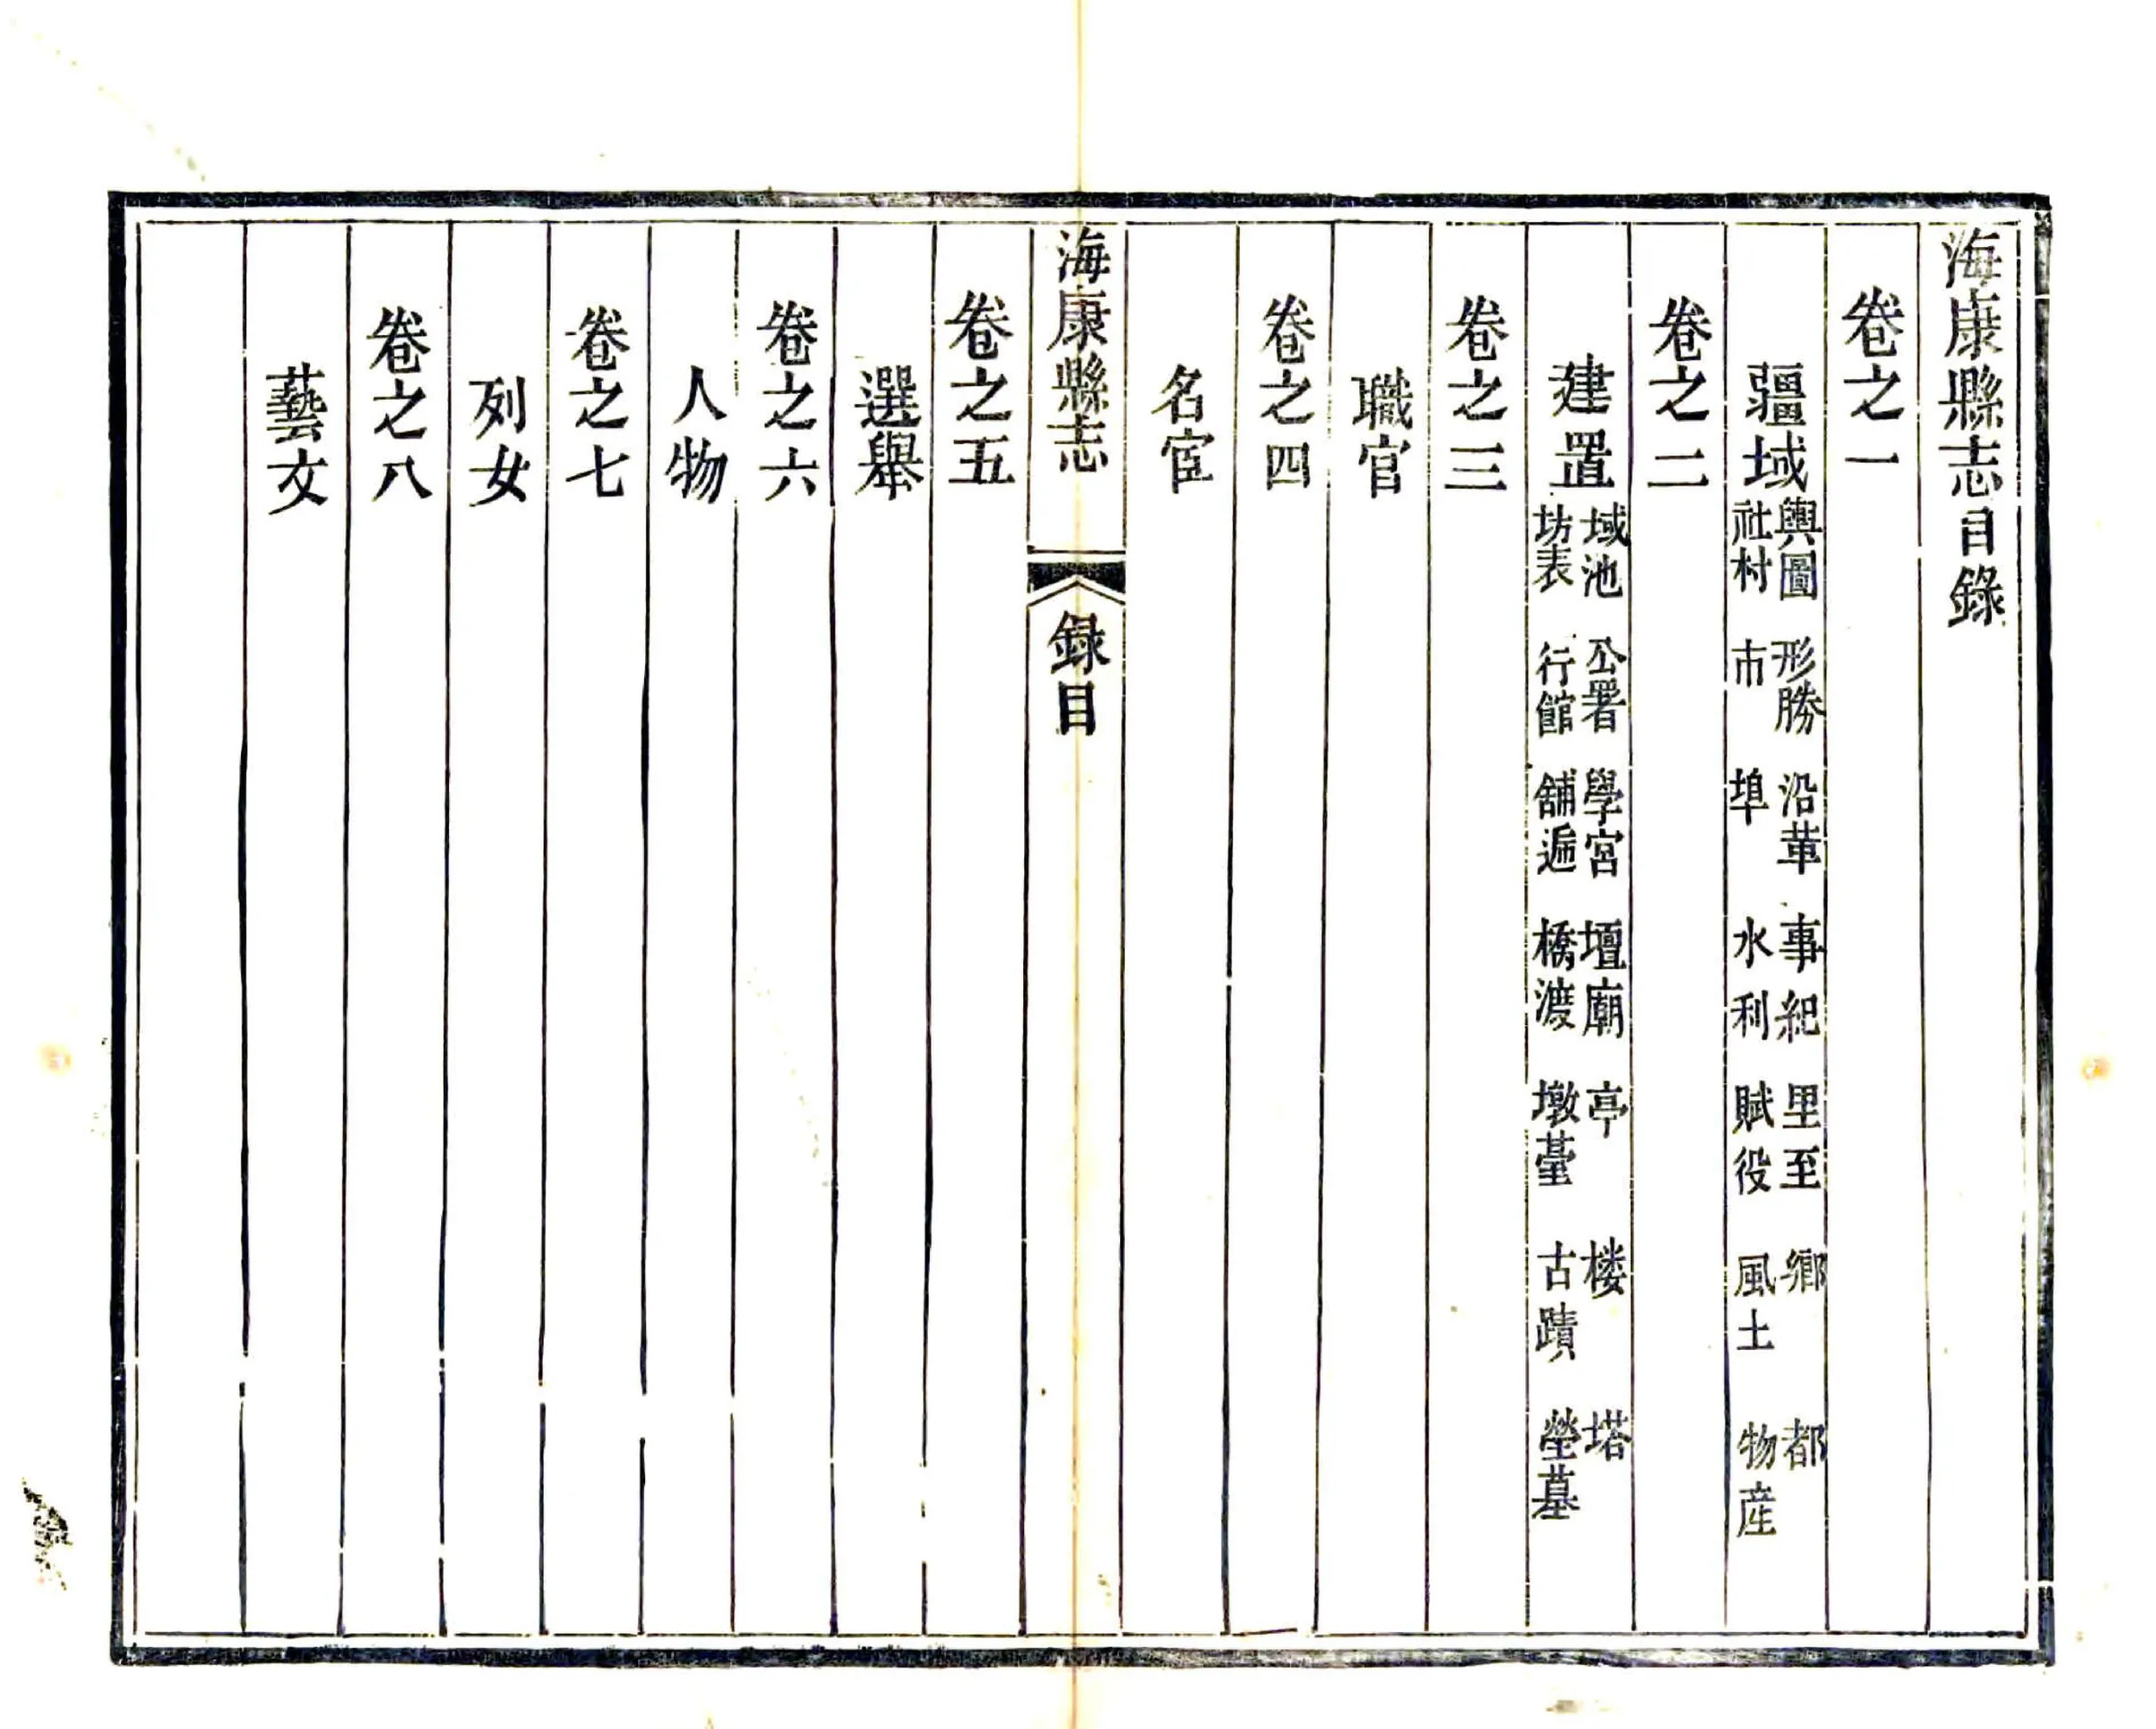 海康縣志目錄
卷之一
疆域
輿圖 形勝 沿革 事紀 里至 鄉 都
社村 市 埠 水利 賦役 風土 物産
卷之二
建置
域池 公署 學宮 壇廟 亭 楼 塔
坊表 行館 舖遞 橋渡 墩臺 古蹟 塋墓
卷之三
職官
卷之四
名宦
海康縣志 録目
卷之五
選舉
卷之六
人物
卷之七
列女
卷之八
藝文